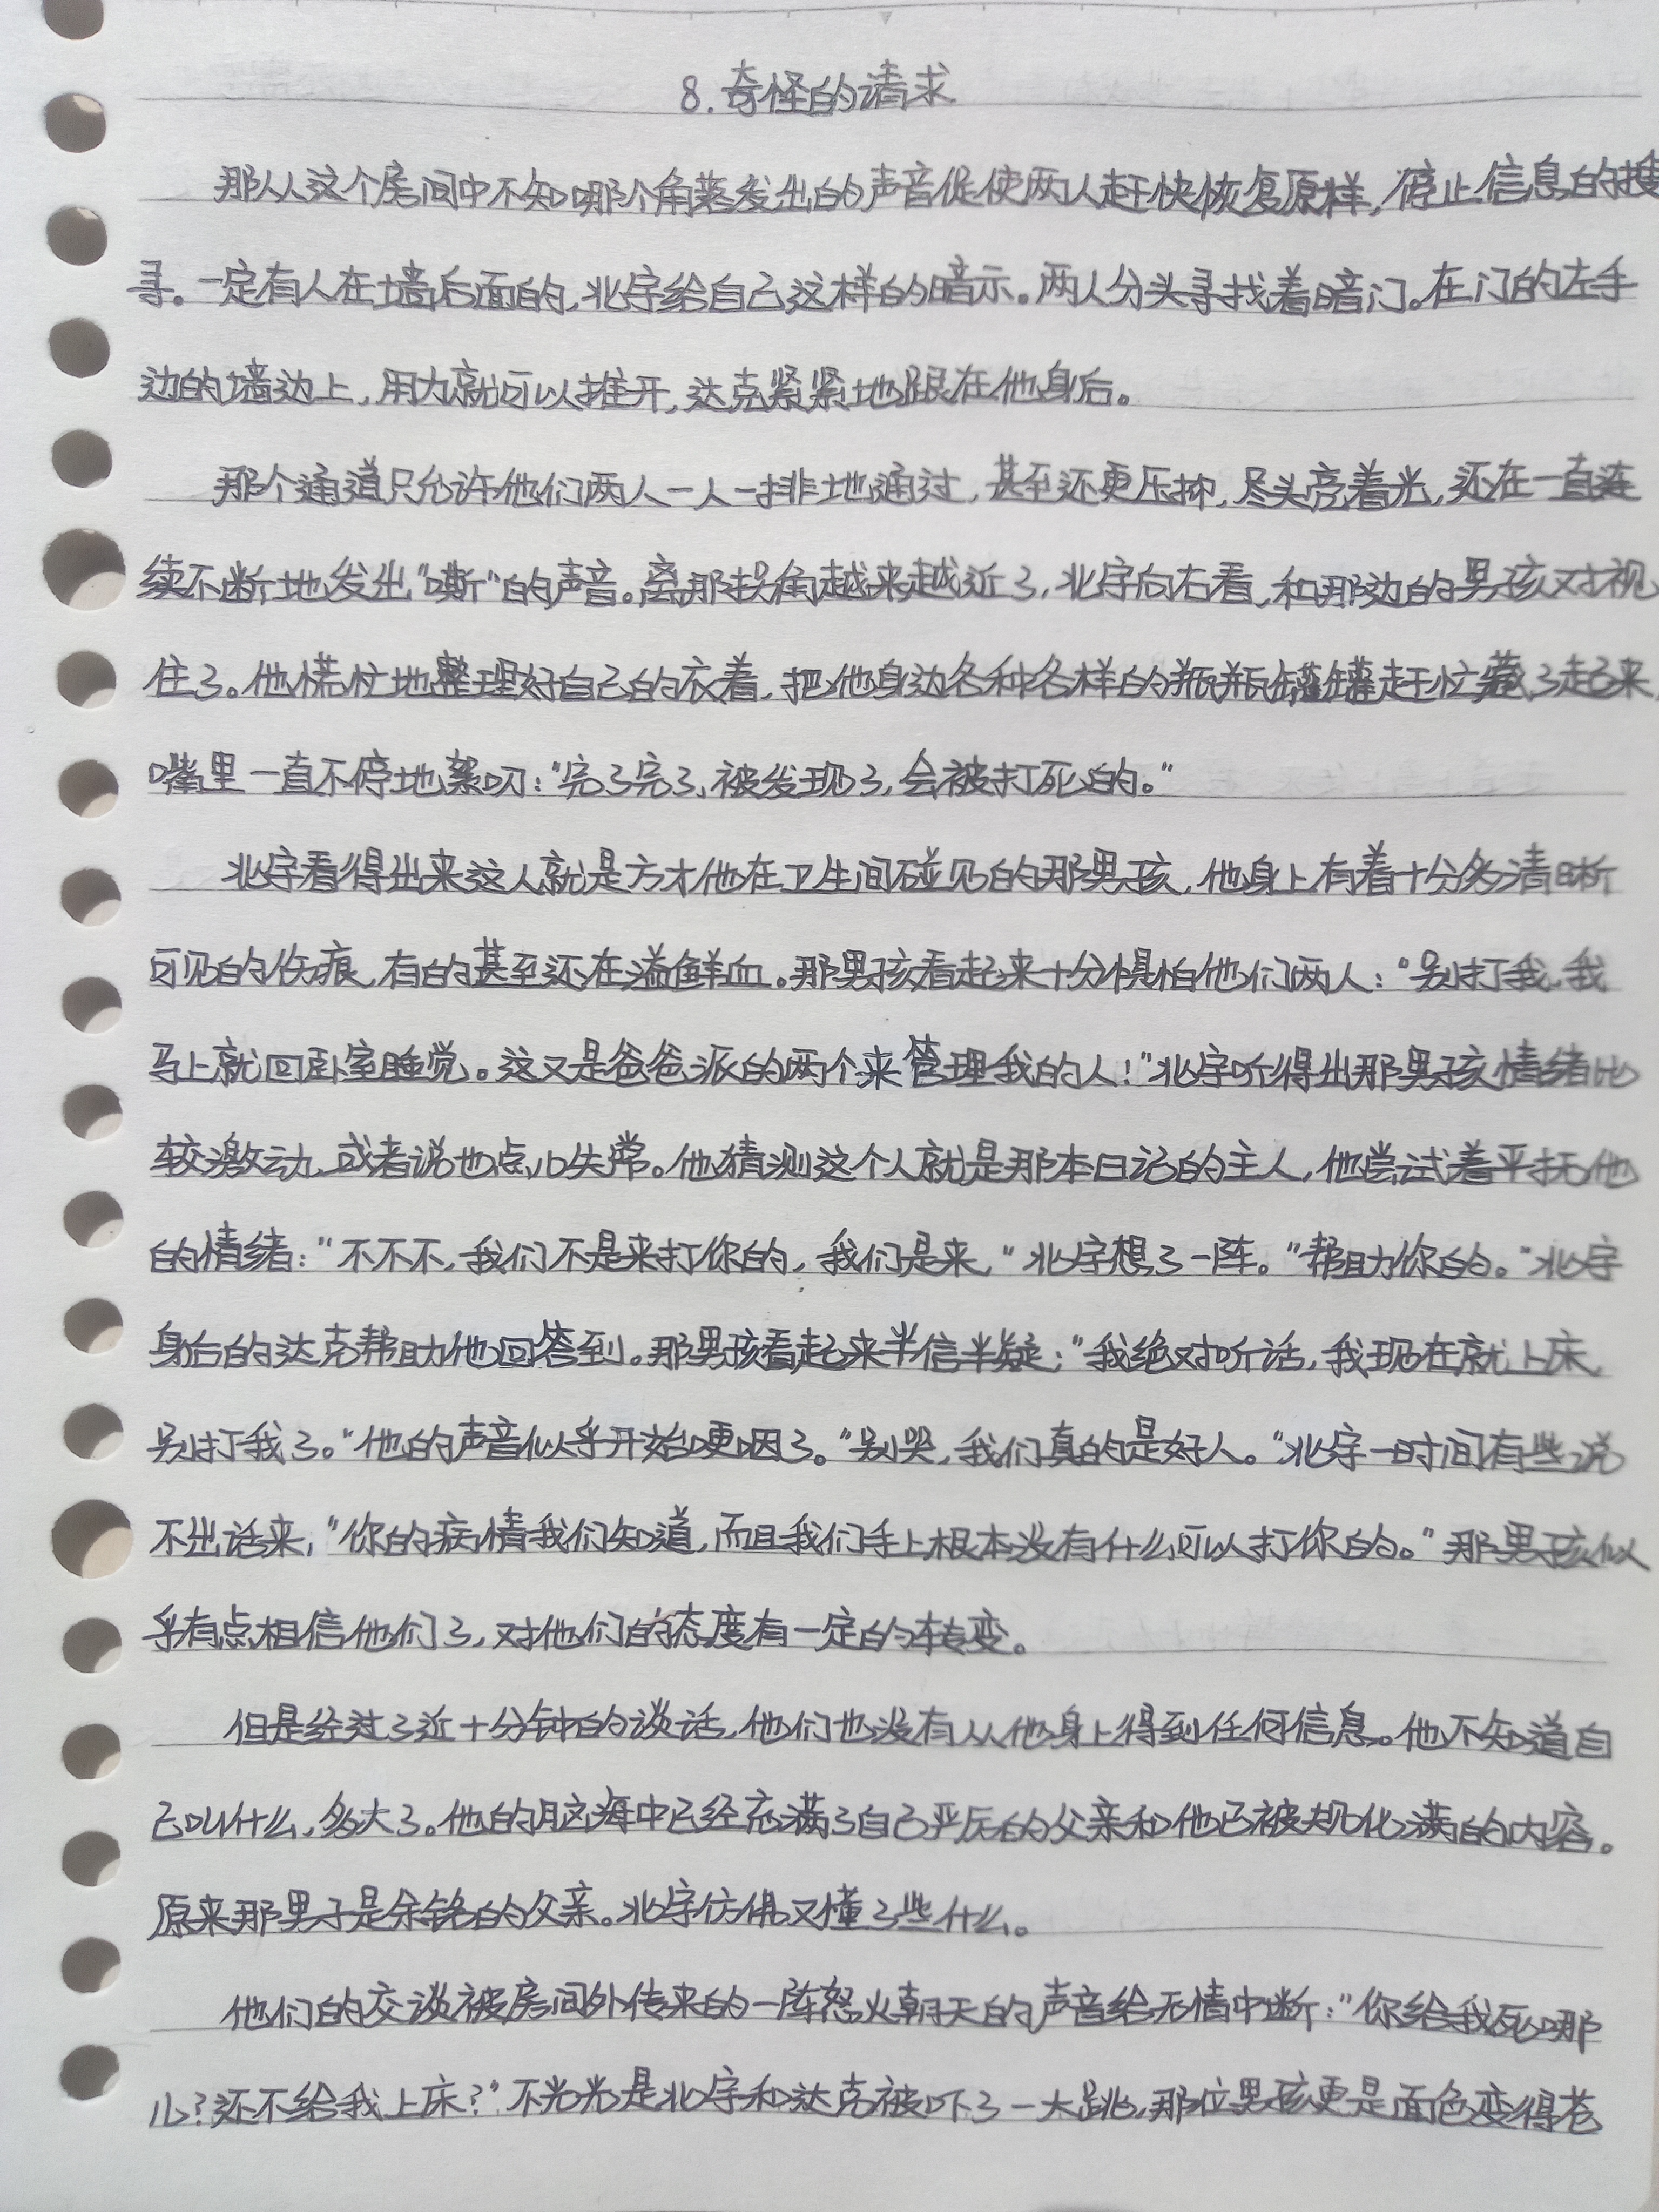 8.奇怪的请求
那从这个房间中不知哪个角落发出的声音促使两人赶快恢复原样,停止信息的搜
寻。一定有人在墙后面的,北宇给自己这样的暗示。两人分头寻找着暗门。在门的左手
边的墙边上,用力就可以推开,达克紧紧地跟在他身后。
那个通道只允许他们两人一人一排地通过,甚至还更压抑,尽头亮着光,还在一直连
续不断地发出"嘶"的声音。离那拐角越来越近了,北宇向右看,和那边的男孩对视
住了。他慌忙地整理好自己的衣着,把他身边各种各样的瓶瓶罐罐赶忙藏了起来,
嘴里一直不停地絮叨:"完了完了,被发现了,会被打死的。"
北宇看得出来这人就是方才他在卫生间碰见的那男孩,他身上有着十分多清晰
可见的伤痕,有的甚至还在溢鲜血。那男孩看起来十分惧怕他们两人:"别打我,我
马上就回卧室睡觉。这又是爸爸派的两个来管理我的人!"北宇听得出那男孩情绪比
较激动,或者说也点儿失常。他猜测这个人就是那本日记的主人,他尝试着平抚他
的情绪:"不不不,我们不是来打你的,我们是来,"北宇想了一阵。"帮助你的。"北宇
身后的达克帮助他回答到。那男孩看起来半信半疑:"我绝对听话,我现在就上床,
别打我了。"他的声音似乎开始哽咽了。"别哭,我们真的是好人。"北宇一时间有些说
不出话来,"你的病情我们知道,而且我们手上根本没有什么可以打你的。"那男孩似
乎有点相信他们了,对他们的态度有一定的转变。
但是经过了近十分钟的谈话,他们也没有从他身上得到任何信息。他不知道自
己叫什么,多大了。他的脑海中已经充满了自己严厉的父亲和他已被规化满的内容。
原来那男子是余铭的父亲。北宇仿佛又懂了些什么。
他们的交谈被房间外传来的一阵怒火朝天的声音给无情中断:"你给我死哪
儿?还不给我上床?"不光光是北宇和达克被吓了一大跳,那位男孩更是面色变得苍